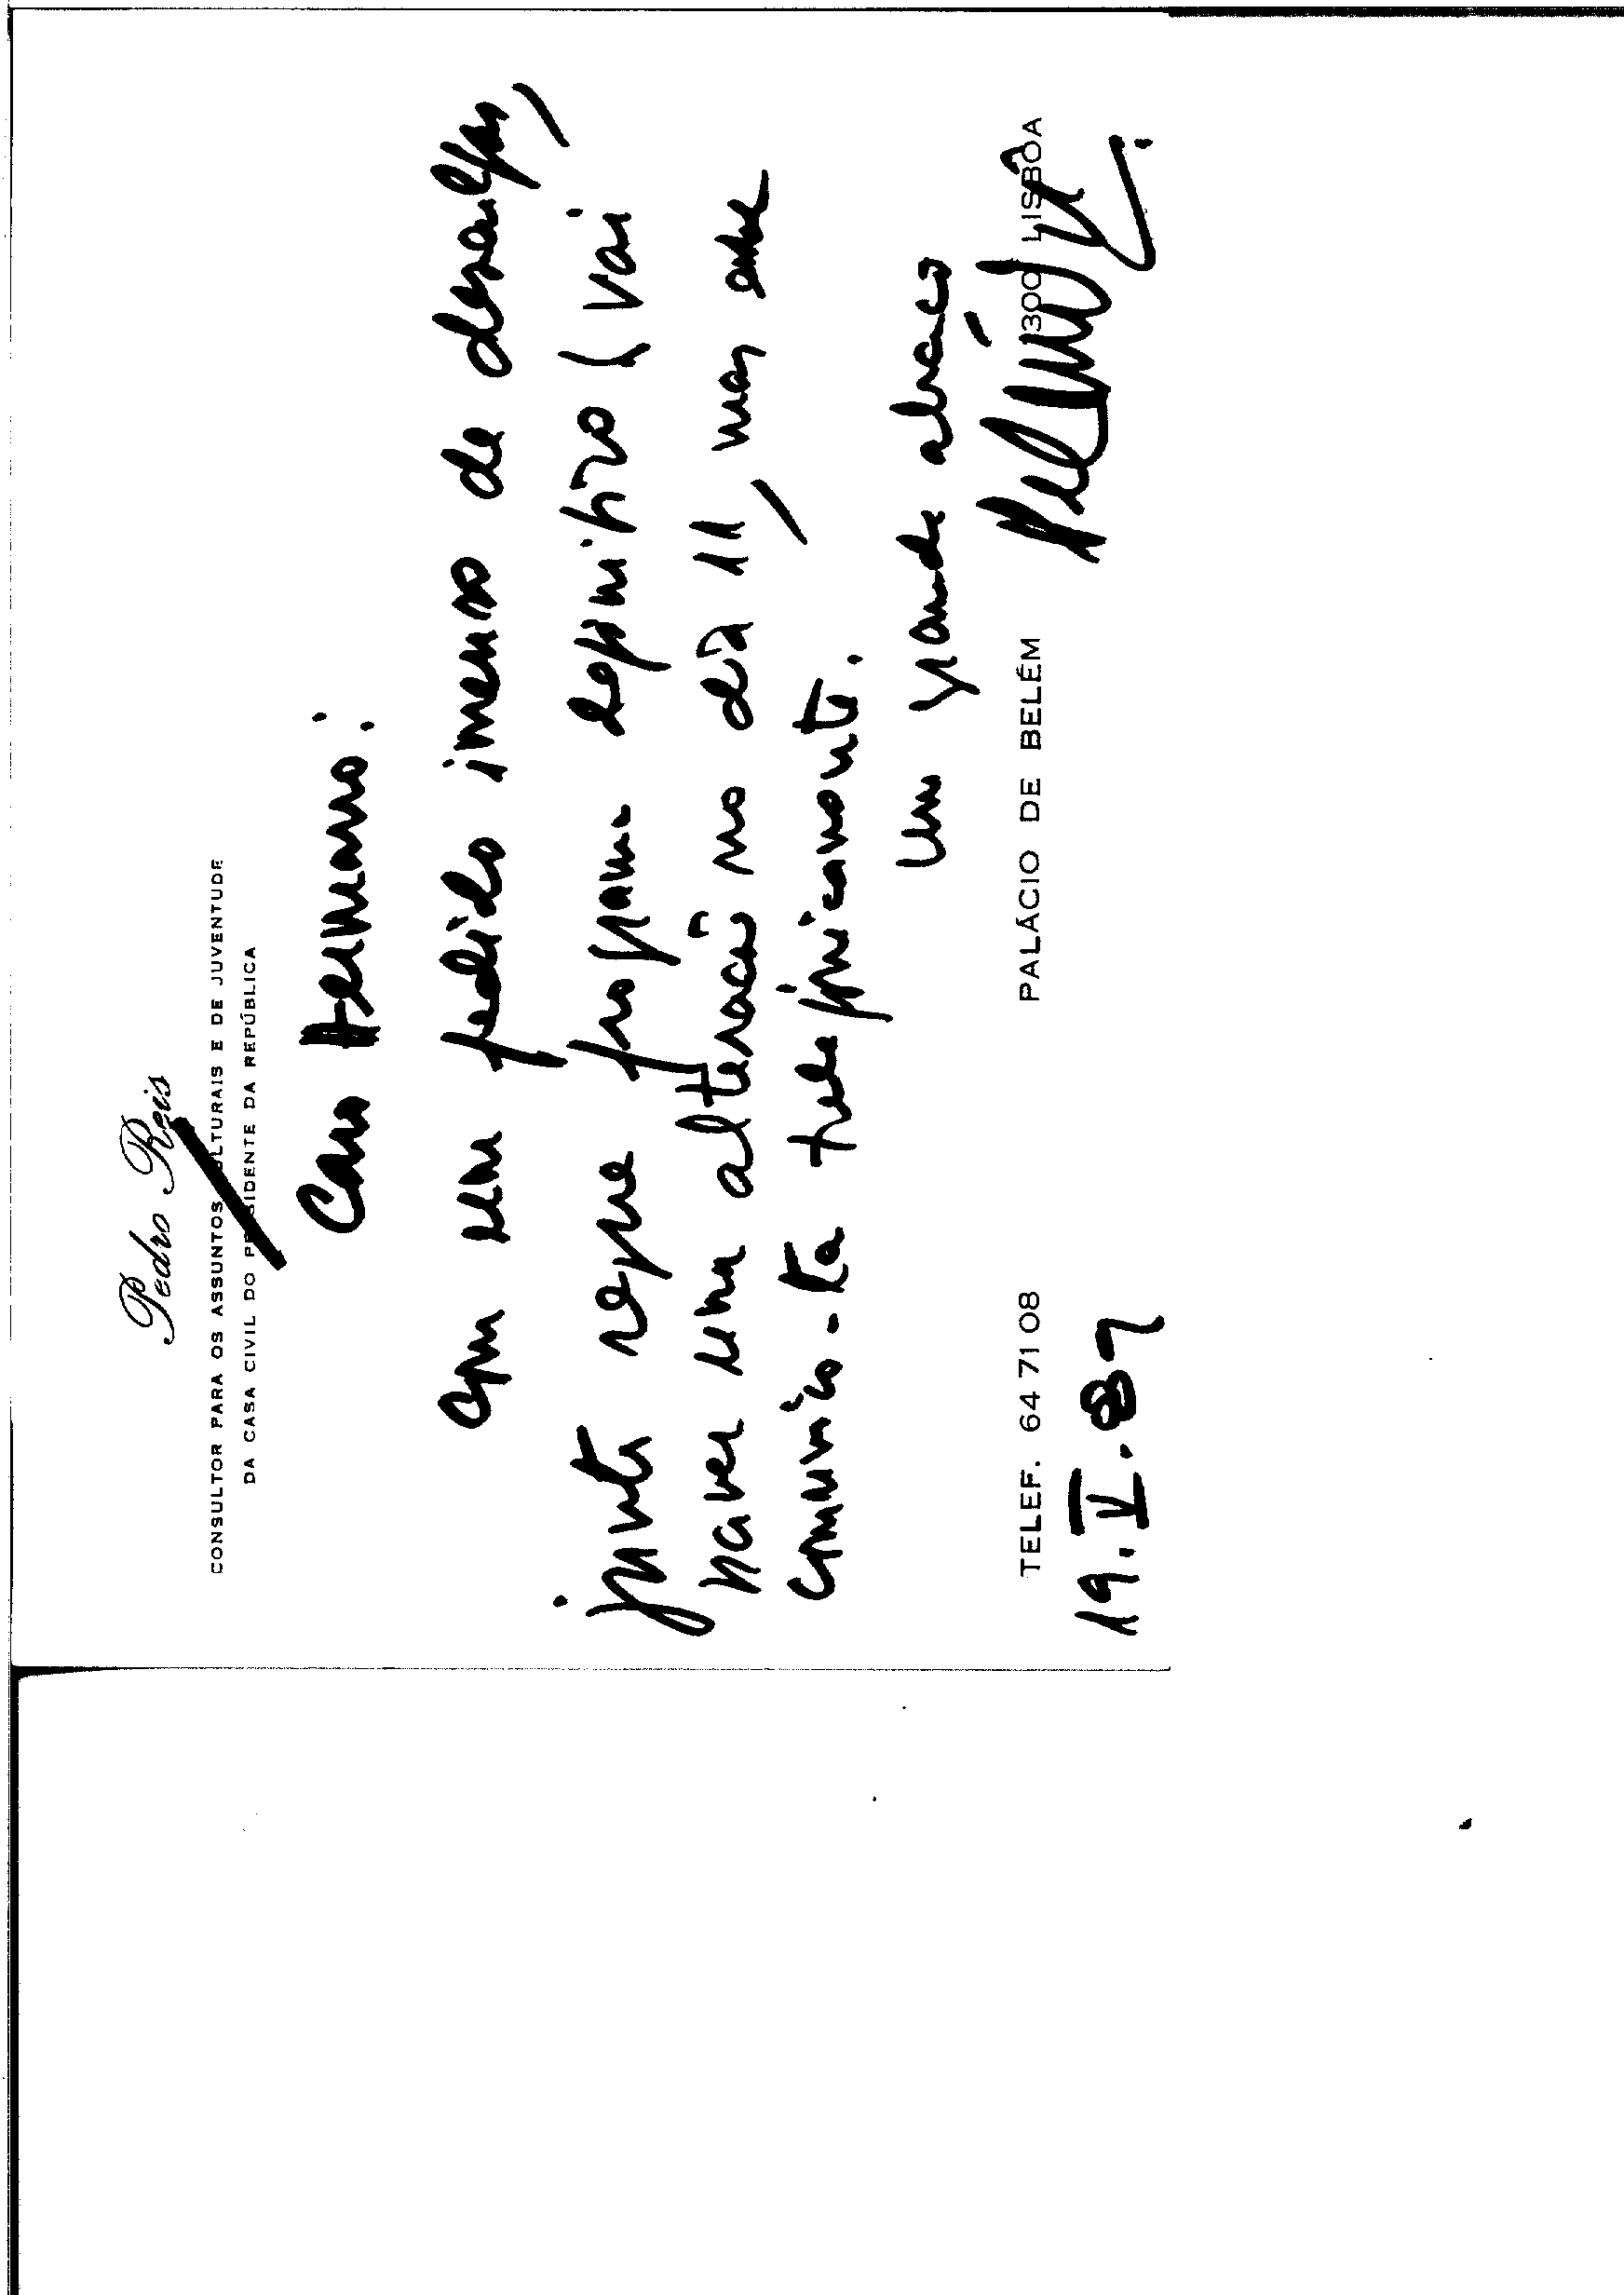 Pedro Reis
CONSULTOR PARA OS ASSUNTOS CULTURAIS E DE JUVENTUDE
DA CASA CIVIL DO PRESIDENTE DA REPÚBLICA
Caro Hermano:
Com um pedido imenso de desculpas,
junto segue programa definitivo (vai
haver uma alteração no dia 11, mas
comunico-ta telefonicamente.
Um grande abraço
TELEF. 64 71 08 PALÁCIO DE BELÉM 1300 LISBOA
19.V.87